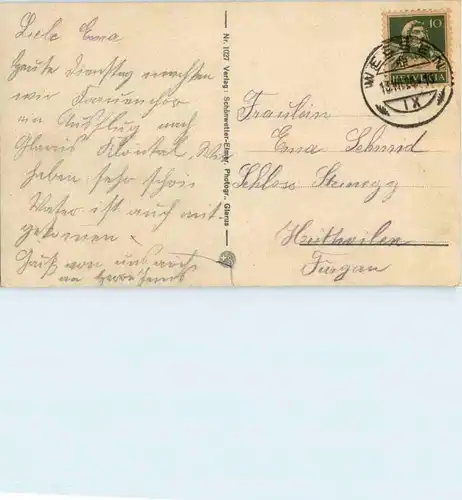 Liele Ema
Heute Dienstag machten
wir Frauenchor
ein Ausflug nach
Glarus Klöntal, Wir
haben sehr schön
Vater ist auch mit-
gekomen.
Gruß von uns auch
an Herr
Nr. 1027 Verlag: Schönwetter-Elmer, Photogr., Glarus
10
HELVETIA
WEESEN
IX
Fräulein
Ema Schmid
Schloss Steinegg
Hüttweilen
Turgau